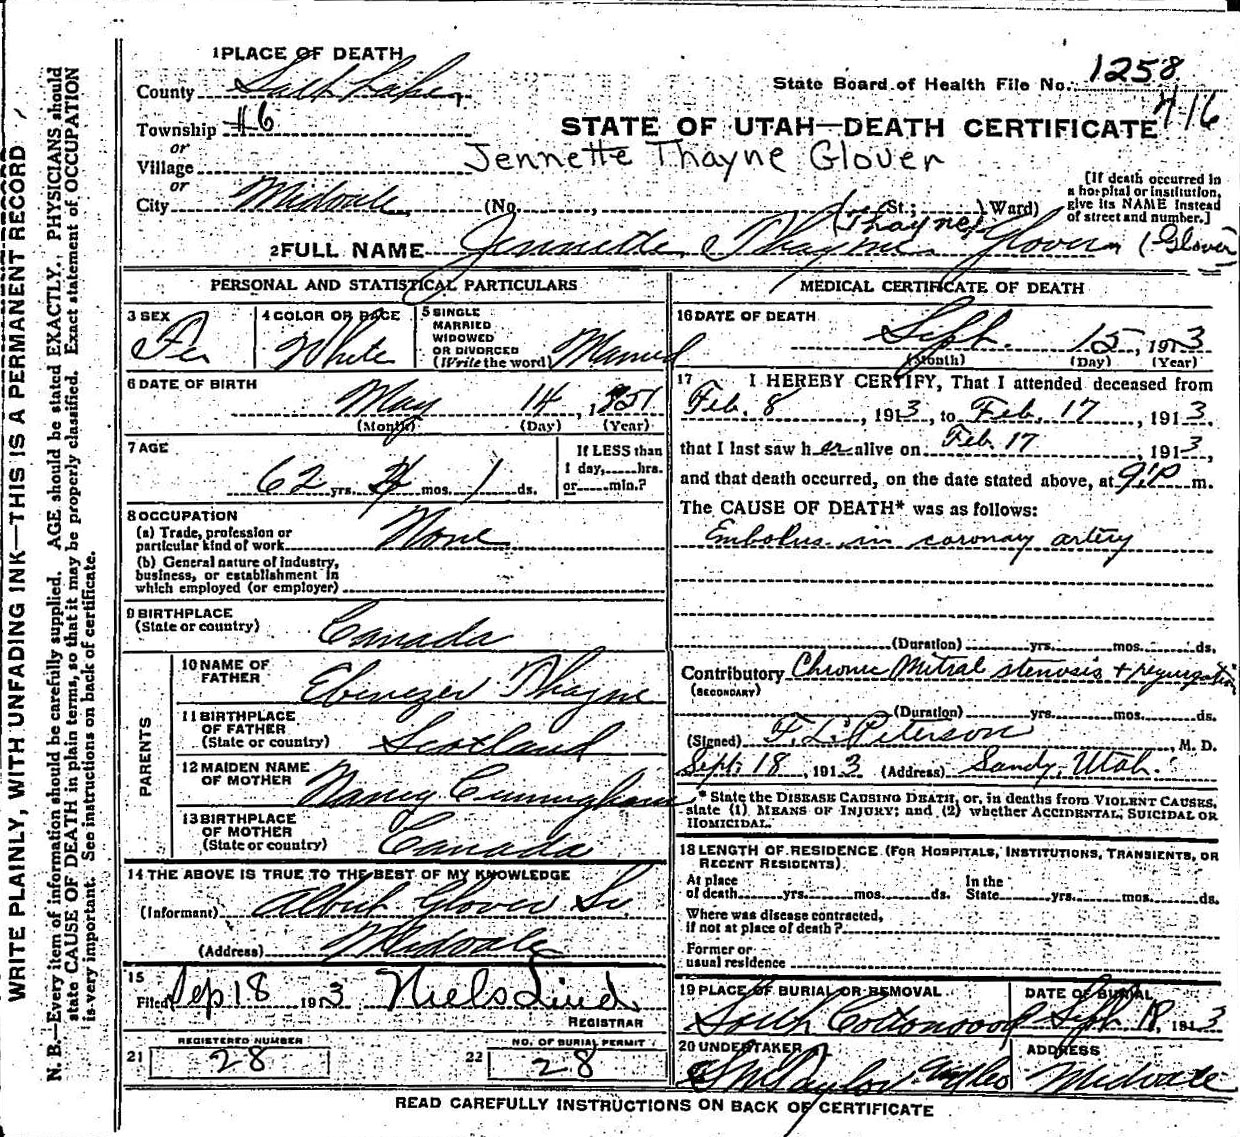 1 PLACE OF DEATH
County Salt Lake
State Board of Health File No. 1258
416
Township #6
STATE OF UTAH—DEATH CERTIFICATE
or
Village
Jennette Thayne Glover
or
City Midvale (No. , St.; Ward)
[If death occurred in
a hospital or institution,
give its NAME instead
of street and number.]
(Thayne)
2 FULL NAME Jennette Thayne Glover (Glover
PERSONAL AND STATISTICAL PARTICULARS
3 SEX
Fe
4 COLOR OR RACE
White
5 SINGLE
MARRIED
WIDOWED
OR DIVORCED
(Write the word) Married
6 DATE OF BIRTH
May 14, 1851
(Month) (Day) (Year)
7 AGE
62 yrs. 4 mos. 1 ds.
If LESS than
1 day,......hrs.
or......min.?
8 OCCUPATION
(a) Trade, profession or
particular kind of work None
(b) General nature of industry,
business, or establishment in
which employed (or employer)
9 BIRTHPLACE
(State or country) Canada
PARENTS
10 NAME OF
FATHER Ebenezer Thayne
11 BIRTHPLACE
OF FATHER
(State or country) Scotland
12 MAIDEN NAME
OF MOTHER Nancy Cunningham
13 BIRTHPLACE
OF MOTHER
(State or country) Canada
14 THE ABOVE IS TRUE TO THE BEST OF MY KNOWLEDGE
(Informant) Albert Glover Sr.
(Address) Midvale
15
Filed Sep 18 1913 Niels Lind
REGISTRAR
21 REGISTERED NUMBER
28
22 NO. OF BURIAL PERMIT
28
MEDICAL CERTIFICATE OF DEATH
16 DATE OF DEATH
Sept. 15, 1913
(Month) (Day) (Year)
17 I HEREBY CERTIFY, That I attended deceased from
Feb. 8, 1913, to Feb. 17, 1913.
that I last saw her alive on Feb. 17, 1913,
and that death occurred, on the date stated above, at 9 P m.
The CAUSE OF DEATH* was as follows:
Embolus in coronary artery
(Duration) yrs. mos. ds.
Contributory Chronic Mitral stenosis + regurgitation
(SECONDARY)
(Duration) yrs. mos. ds.
(Signed) F. L. Peterson, M. D.
Sept. 18, 1913 (Address) Sandy, Utah.
* State the DISEASE CAUSING DEATH, or, in deaths from VIOLENT CAUSES,
state (1) MEANS OF INJURY; and (2) whether ACCIDENTAL, SUICIDAL OR
HOMICIDAL.
18 LENGTH OF RESIDENCE (FOR HOSPITALS, INSTITUTIONS, TRANSIENTS, OR
RECENT RESIDENTS).
At place
of death yrs. mos. ds.
In the
State yrs. mos. ds.
Where was disease contracted,
if not at place of death?
Former or
usual residence
19 PLACE OF BURIAL OR REMOVAL
South Cottonwood
DATE OF BURIAL
Sept 18, 1913
20 UNDERTAKER
Taylor
ADDRESS
Midvale
READ CAREFULLY INSTRUCTIONS ON BACK OF CERTIFICATE
WRITE PLAINLY, WITH UNFADING INK—THIS IS A PERMANENT RECORD
N. B.—Every item of information should be carefully supplied. AGE should be stated EXACTLY. PHYSICIANS should
state CAUSE OF DEATH in plain terms, so that it may be properly classified. Exact statement of OCCUPATION
is very important. See instructions on back of certificate.